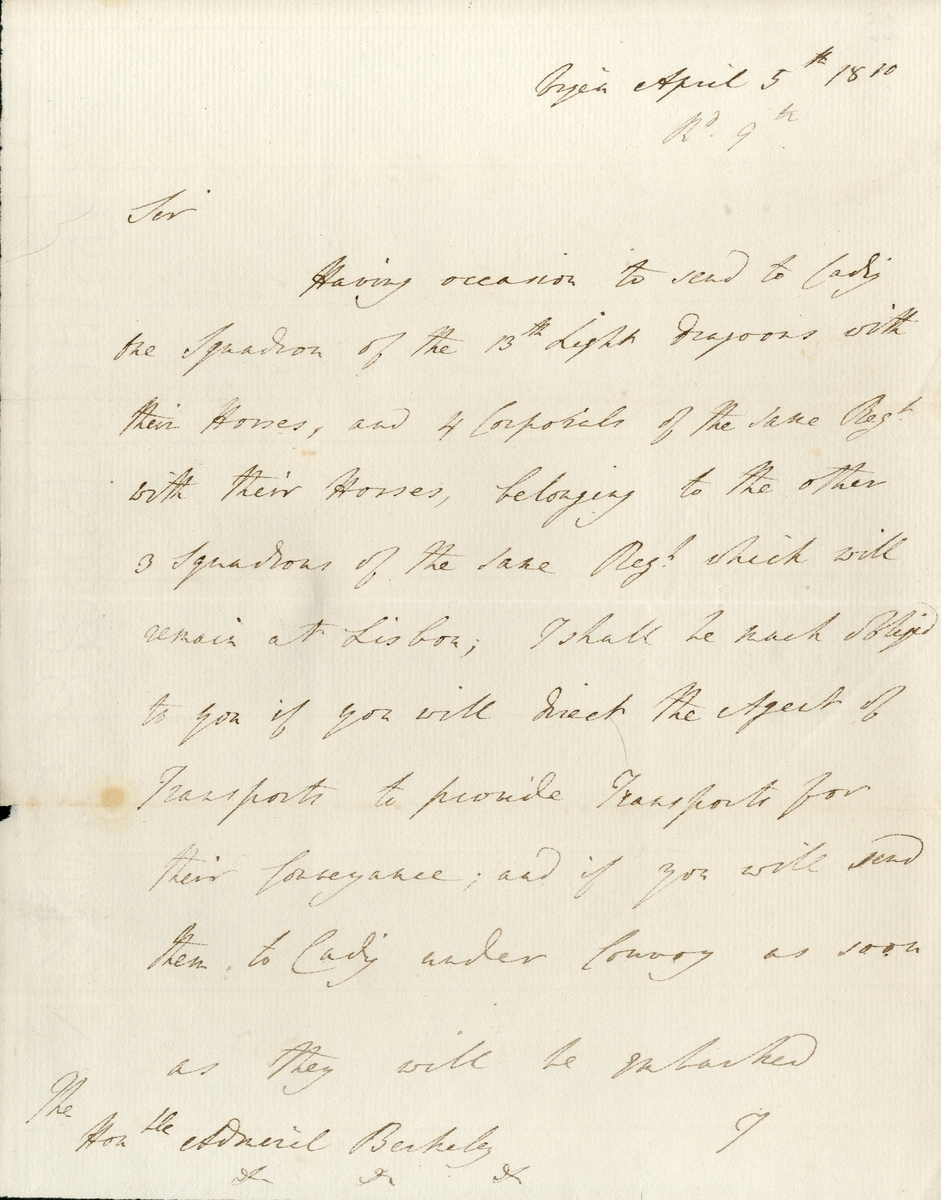 Viseu April 5th 1810
Rd. 9th
Sir
Having occasion to send to Cadiz
one Squadron of the 13th Light Dragoons with
their Horses, and 4 Corporals of the same Regt.
with their Horses, belonging to the other
3 Squadrons of the same Regt. which will
remain at Lisbon; I shall be much obliged
to you if you will direct the Agent of
Transports to provide Transports for
their Conveyance; and if you will send
them to Cadiz under Convoy as soon
as they will be embarked
The
Honble Admiral Berkeley
I
&c &c &c